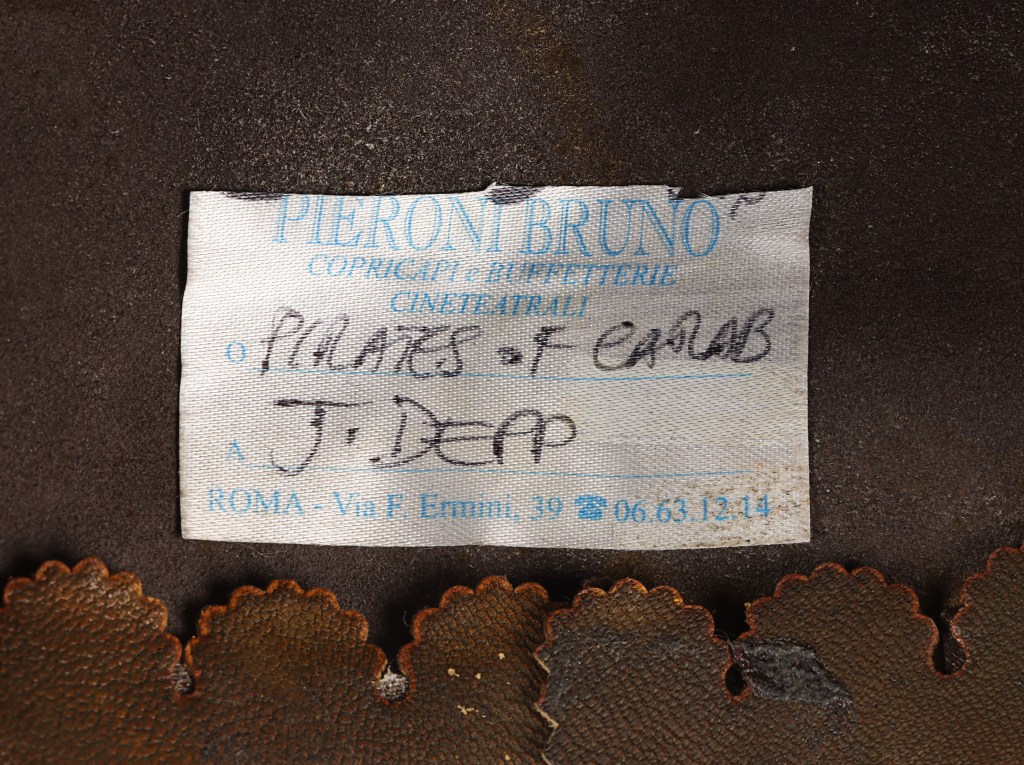 PIERONI BRUNO
COPRICAPI e BUFFETTERIE
CINETEATRALI
O PIRATES OF CARAB
A J. DEPP
ROMA - Via F. Ermini, 39 ☎ 06.63.12.14